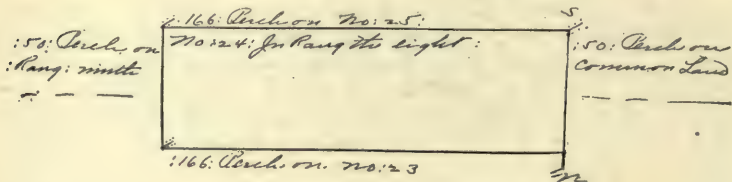 :166: Perch on No: 25:
S
:50: Perch on
:Rang: ninth
No: 24: In Rang the eight:
:50: Perch on
Common Land
:166: Perch on No: 23
N